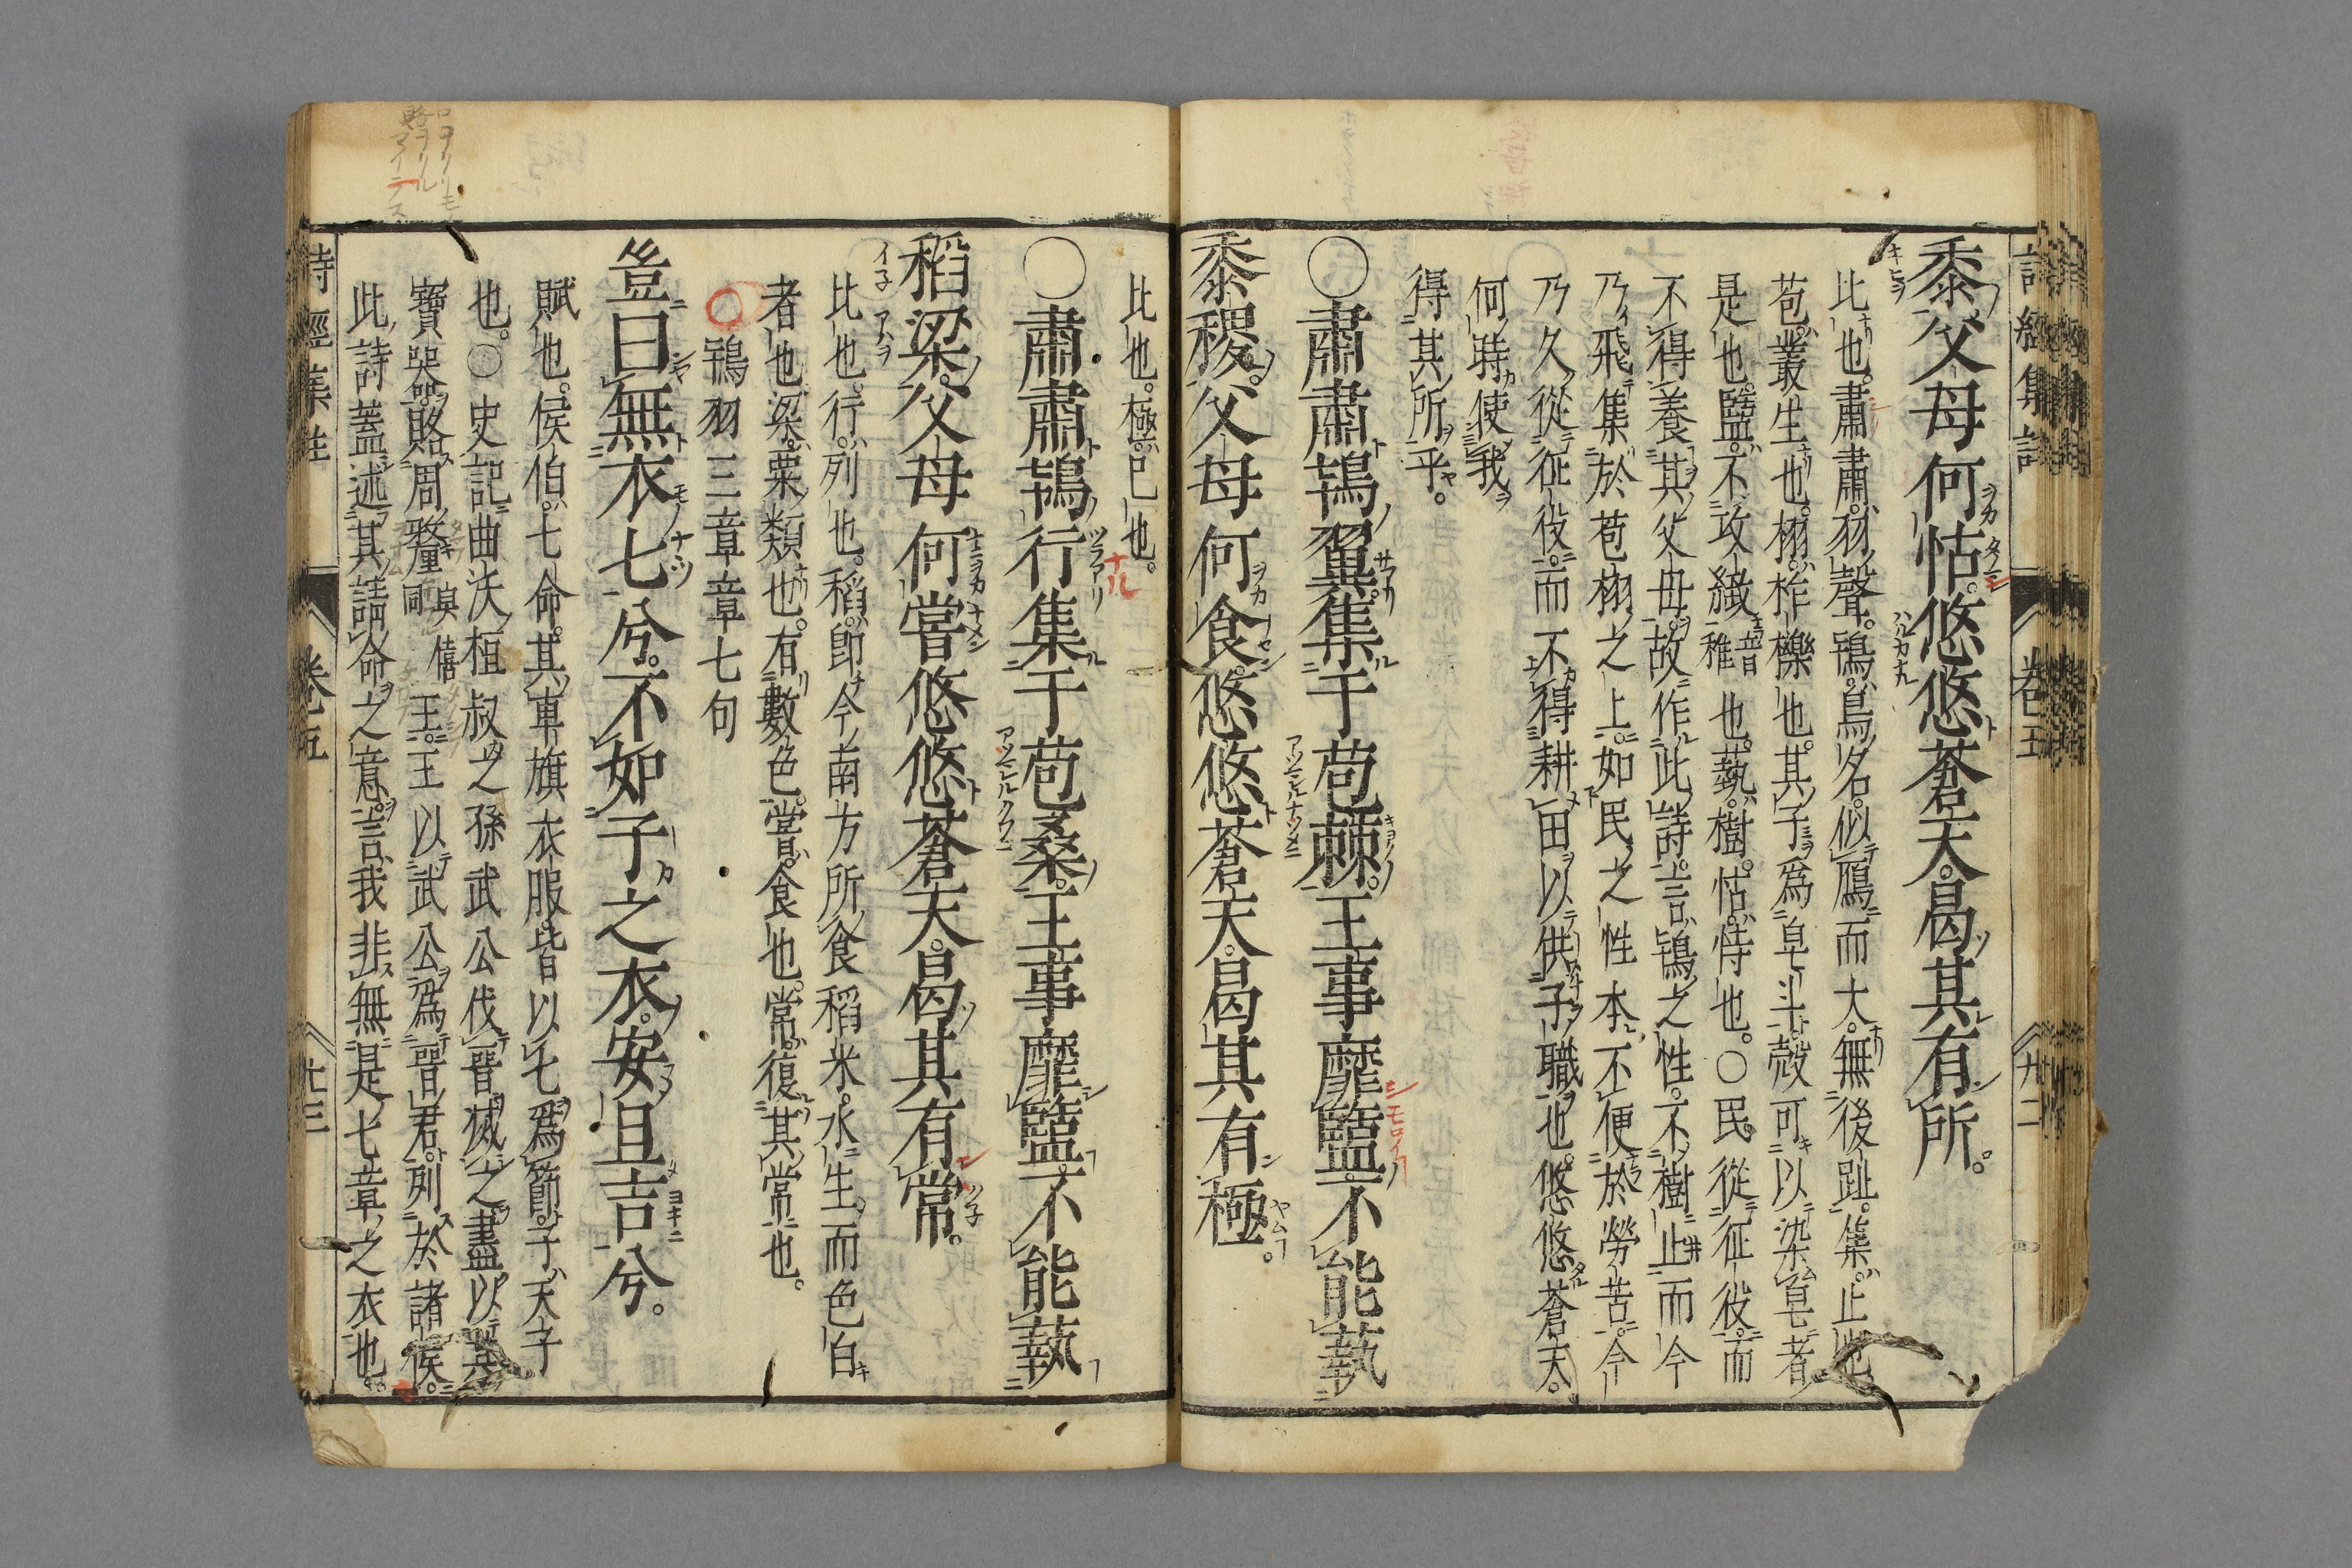 黍父母何怙。悠悠蒼天。曷其有所。
比也。肅肅。羽聲。鴇。鳥名。似鴈而大。無後趾。集。止也。
苞。叢生也。栩。柞櫟也。其子爲皁斗。殼可以染皁者
是也。盬。不攻緻音稚也。蓺。樹。怙。恃也。○民從征役。而
不得養其父母。故作此詩。言鴇之性。不樹止而今
乃飛集於苞栩之上。如民之性本不便於勞苦。今
乃久從征役。而不得耕田以供子職也。悠悠蒼天。
何時使我
得其所乎。
○肅肅鴇翼。集于苞棘。王事靡盬。不能蓺
黍稷。父母何食。悠悠蒼天。曷其有極。
比也。極。已也。
○肅肅鴇行。集于苞桑。王事靡盬。不能蓺
稻粱。父母何嘗。悠悠蒼天。曷其有常。
比也。行。列也。稻。卽今南方所食稻米。水生而色白
者也。粱。粟類也。有數色。嘗。食也。常。復其常也。
○鴇羽三章章七句
豈曰無衣七兮。不如子之衣。安且吉兮。
賦也。侯伯。七命。其車旗衣服。皆以七爲節。子。天子
也。○史記。曲沃桓叔之孫武公伐晉。滅之。盡以其
寶器賂周釐與僖同王。王以武公爲晉君。列於諸侯。
此詩蓋述其請命之意。言我非無是七章之衣也。
詩經集註 卷五 十三